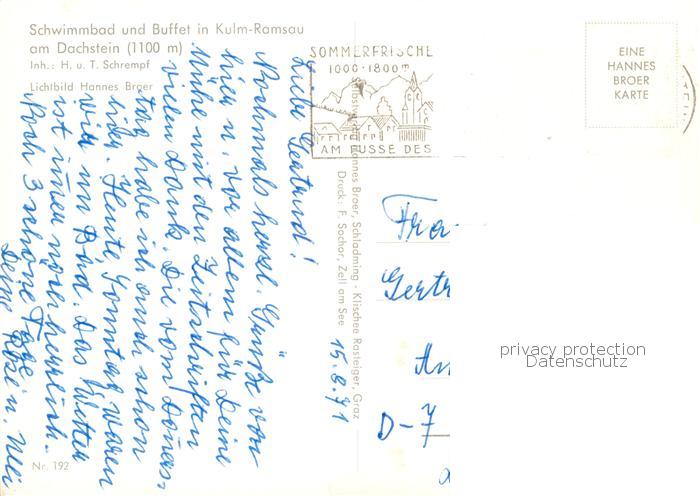 Schwimmbad und Buffet in Kulm-Ramsau
am Dachstein (1100 m)
Inh.: H. u. T. Schrempf
Lichtbild Hannes Broer
SOMMERFRISCHE
1000-1800m
AM FUSSE DES
EINE
HANNES
BROER
KARTE
Selbstverlag Hannes Broer, Schladming - Klischee Rasteiger, Graz
Druck: F. Sochor, Zell am See
15.8.71
Liebe Gertrud!
Nochmals herzl. Grüße von
hier u. vor allem für Deine
Mühe mit den Zeitschriften
vielen Dank. Die vom Donners-
tag habe ich auch schon
Heute, Sonntag waren
wir im Bad. Das Wetter
ist immer noch herrlich.
Noch 3 schöne Tage
Deine Rosi u.
Frau
Gertr
An
D-7
privacy protection
Datenschutz
Nr. 192